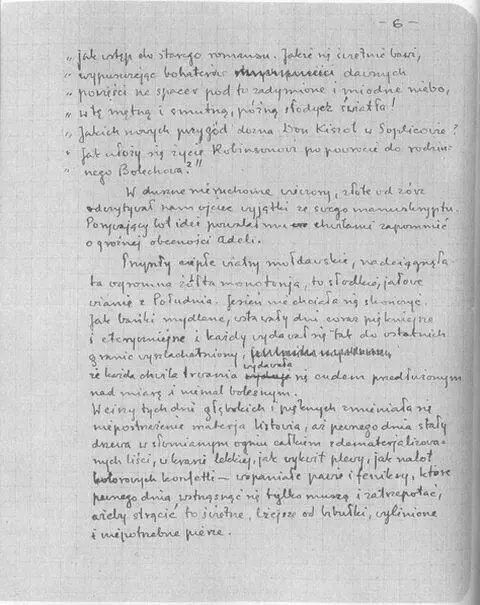 – 6 –
„ jak wstęp do starego romansu. Jakże się świetnie bawi,
„ wypuszczając bohaterów dawnych
„ powieści na spacer pod to zadymione i miodne niebo,
„ w tę mętną i smutną, późną słodycz światła!
„ Jakich nowych przygód dozna Don Kiszot w Soplicowie?
„ Jak ułoży się życie Robinsonowi po powrocie do rodzin-
„ nego Bolechowa?"
W duszne nieruchome wieczory, złote od zórz
odczytywał nam ojciec wyjątki ze swego manuskryptu.
Porywający lot idei pozwalał mu chwilami zapomnieć
o groźnej obecności Adeli.
Przyszły ciepłe wiatry mołdawskie, nadciągnęła
ta ogromna żółta monotonja, to słodkie, jałowe
wianie z Południa. Jesień nie chciała się skończyć.
Jak bańki mydlane, wstawały dni coraz piękniejsze
i eteryczniejsze i każdy wydawał się tak do ostatnich
granic wyszlachetniony,
że każda chwila trwania wydawała się cudem przedłużonym
nad miarę i niemal bolesnym.
W ciszy tych dni głębokich i pięknych zmieniała się
niepostrzeżenie materja listowia, aż pewnego dnia stały
drzewa w słomianym ogniu całkiem zdematerjalizowa-
nych liści, w krasie lekkiej, jak wykwit plewy, jak nalot
kolorowych konfetti – wspaniałe pawie i feniksy, które
pewnego dnia wstrząsnąć się tylko muszą i zatrzepotać,
ażeby strącić to świetne, lżejsze od bibułki, wylinione
i niepotrzebne pierze.